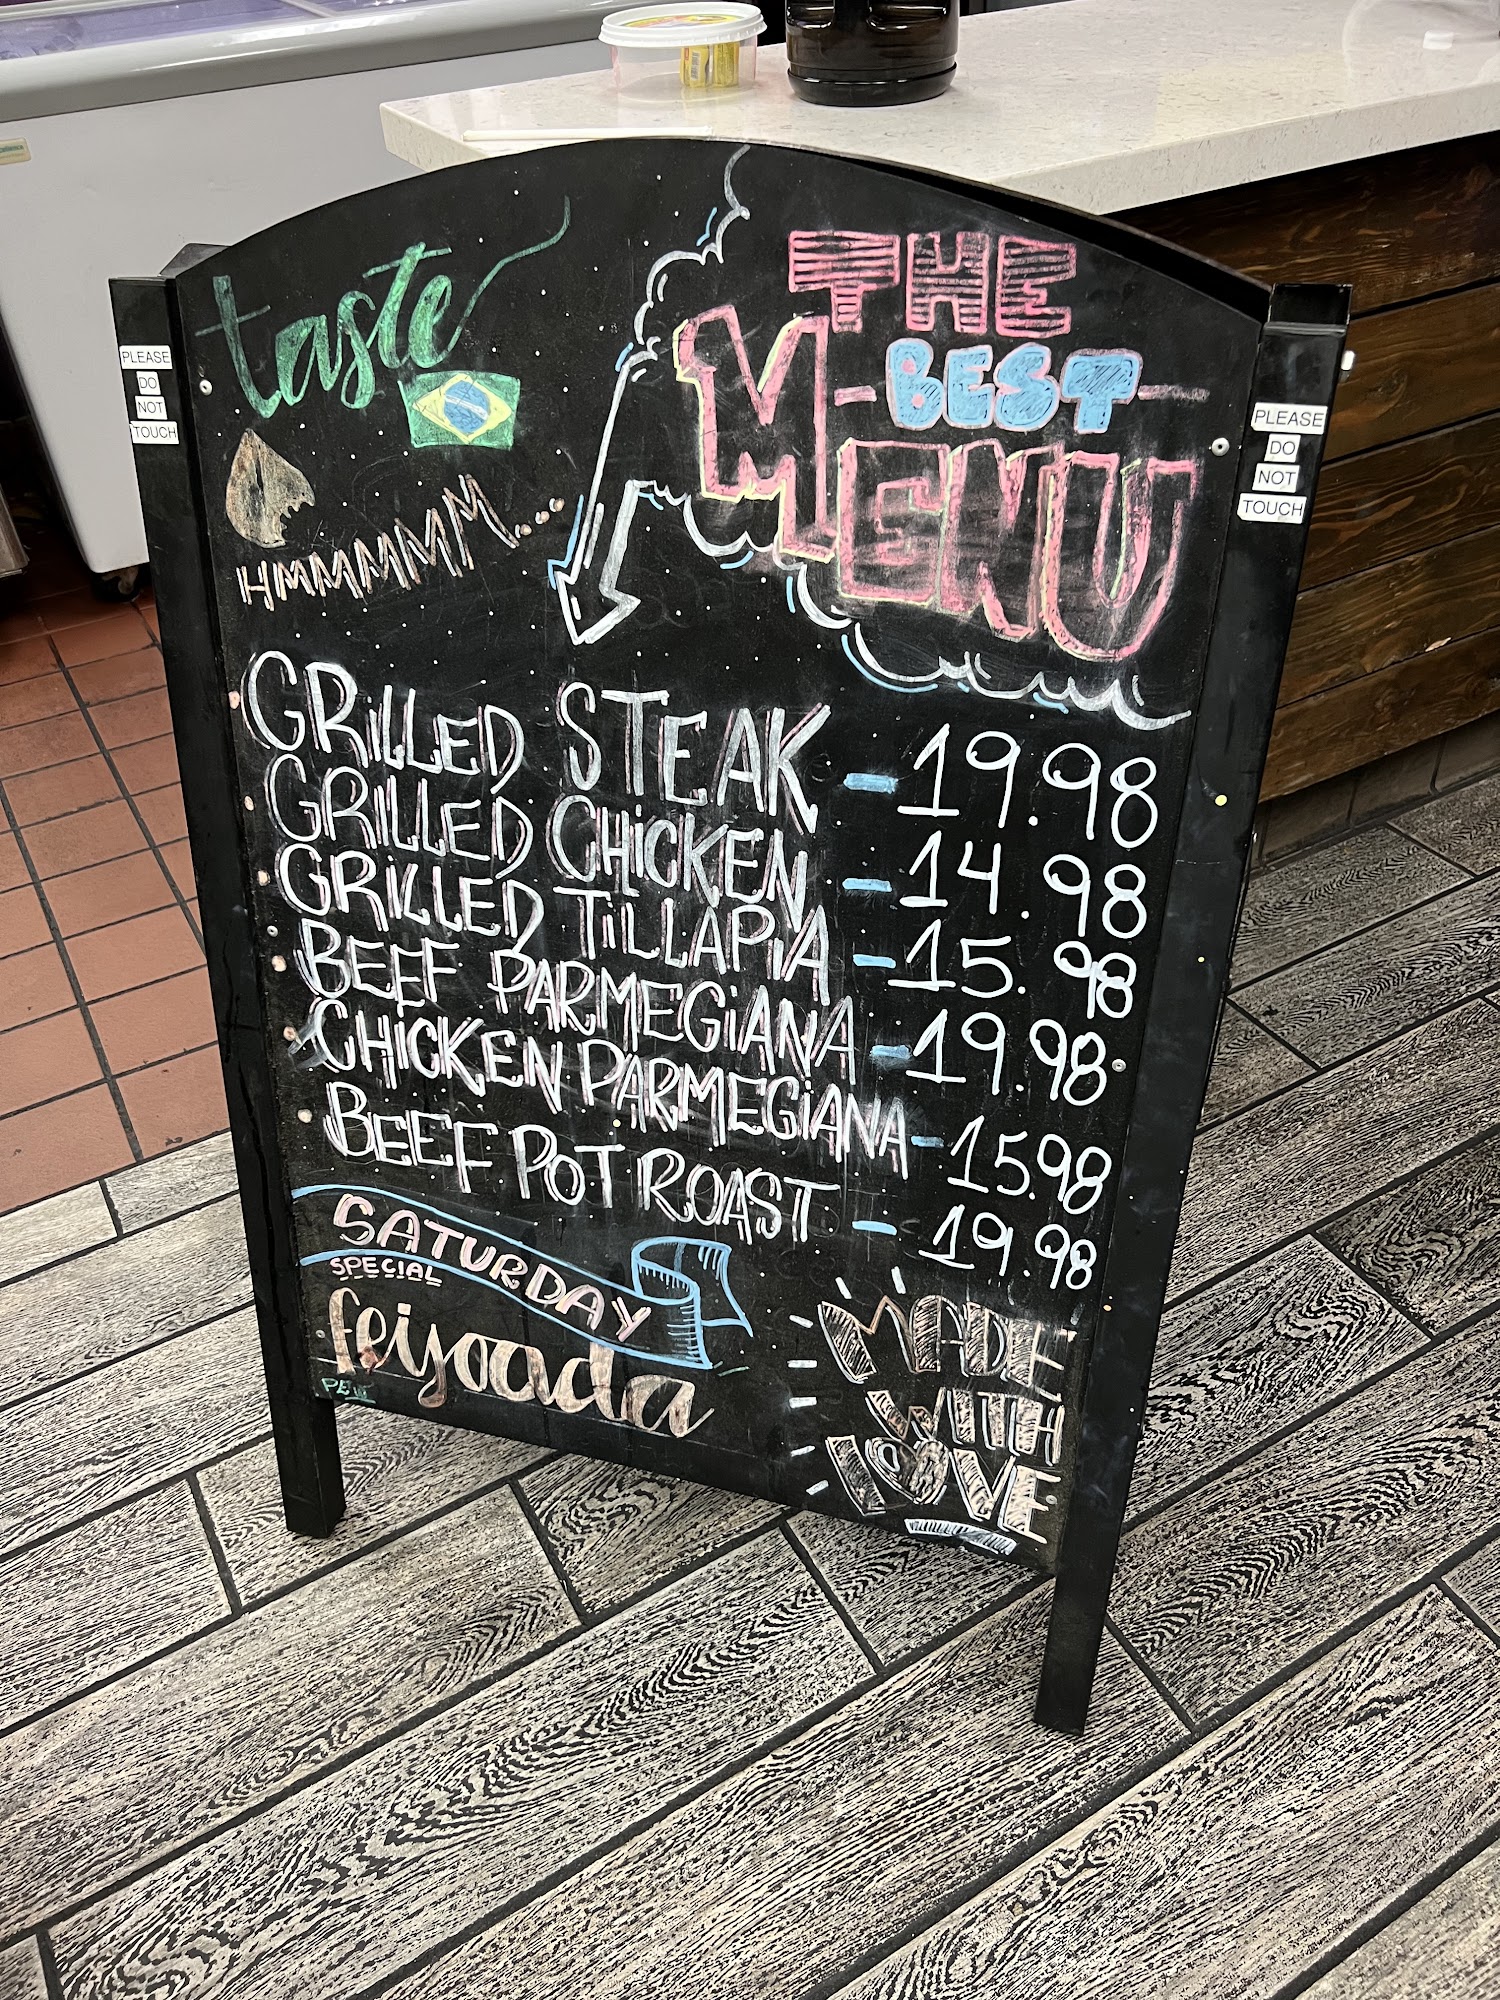 taste
HMMMMMM...
THE
BEST
MENU
PLEASE
DO
NOT
TOUCH
PLEASE
DO
NOT
TOUCH
GRiLLED STEAK - 19.98
GRiLLED CHiCKEN - 14.98
GRiLLED TiLLAPiA - 15.98
BEEF PARMEGiANA - 19.98
CHiCKEN PARMEGiANA - 15.98
BEEF POT ROAST - 19.98
SATURDAY
SPECIAL
feijoada
MADE
WITH
LOVE